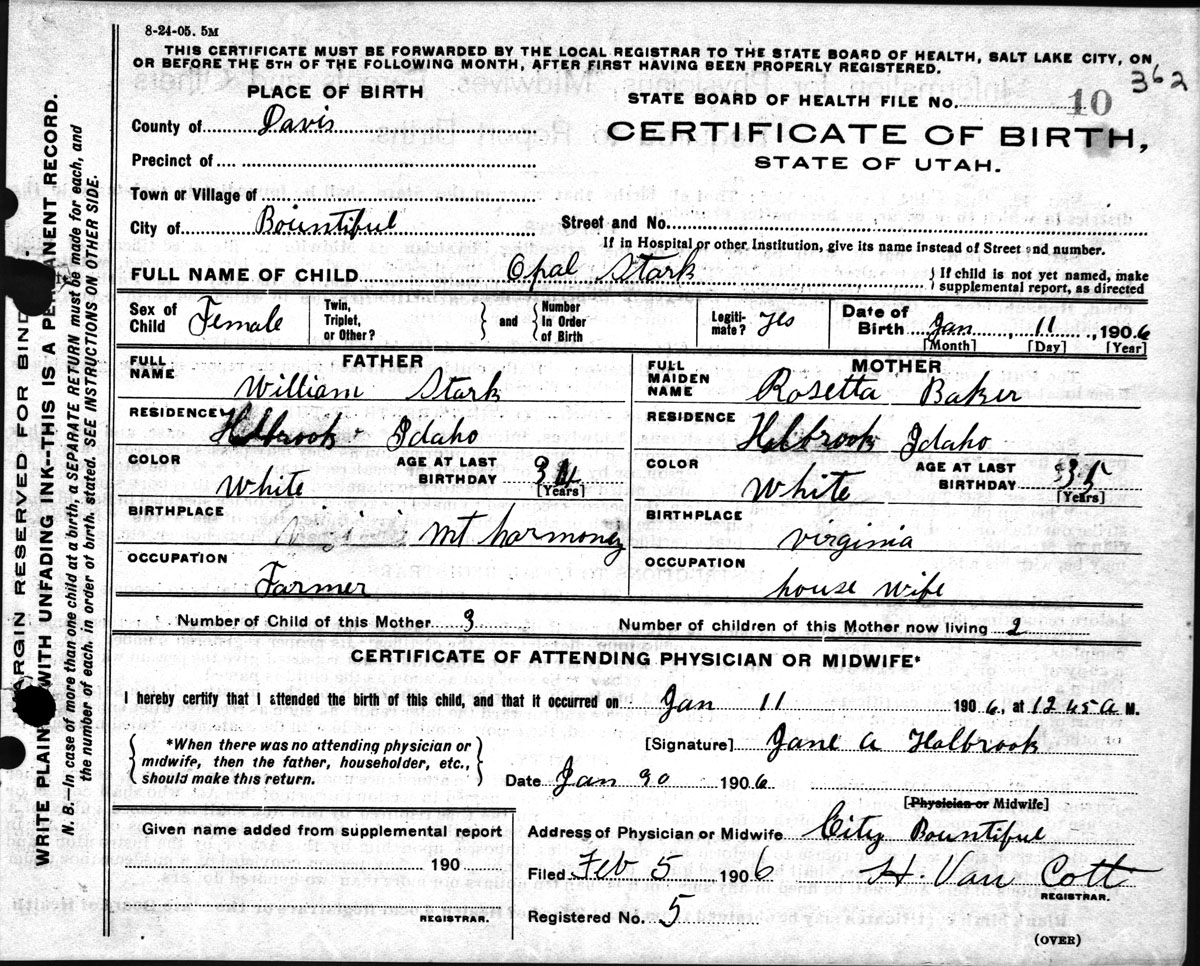 8-24-05. 5M
THIS CERTIFICATE MUST BE FORWARDED BY THE LOCAL REGISTRAR TO THE STATE BOARD OF HEALTH, SALT LAKE CITY, ON
OR BEFORE THE 5TH OF THE FOLLOWING MONTH, AFTER FIRST HAVING BEEN PROPERLY REGISTERED.
362
PLACE OF BIRTH
STATE BOARD OF HEALTH FILE No. 10
County of Davis
CERTIFICATE OF BIRTH,
STATE OF UTAH.
Precinct of
Town or Village of
City of Bountiful Street and No.
If in Hospital or other Institution, give its name instead of Street and number.
FULL NAME OF CHILD Opal Stark { If child is not yet named, make supplemental report, as directed
Sex of Child Female Twin, Triplet, or Other? } and { Number In Order of Birth Legitimate? Yes Date of Birth Jan, 11, 1906
[Month] [Day] [Year]
FATHER
FULL NAME William Stark
RESIDENCE Holbrook Idaho
COLOR White AGE AT LAST BIRTHDAY 34 [Years]
BIRTHPLACE Mt harmoney
OCCUPATION Farmer
MOTHER
FULL MAIDEN NAME Rosetta Baker
RESIDENCE Holbrook Idaho
COLOR White AGE AT LAST BIRTHDAY 35 [Years]
BIRTHPLACE virginia
OCCUPATION house wife
Number of Child of this Mother 3 Number of children of this Mother now living 2
CERTIFICATE OF ATTENDING PHYSICIAN OR MIDWIFE*
I hereby certify that I attended the birth of this child, and that it occurred on Jan 11 1906, at 12 45 a M.
{ *When there was no attending physician or midwife, then the father, householder, etc., should make this return. }
[Signature] Jane A Holbrook
Date Jan 30 1906
[Physician or Midwife]
Given name added from supplemental report
190
REGISTRAR.
Address of Physician or Midwife City Bountiful
Filed Feb 5 1906 H. Van Cott
REGISTRAR.
Registered No. 5
(OVER)
MARGIN RESERVED FOR BIND
WRITE PLAIN WITH UNFADING INK--THIS IS A PERMANENT RECORD.
N. B.—In case of more than one child at a birth, a SEPARATE RETURN must be made for each, and
the number of each, in order of birth, stated. SEE INSTRUCTIONS ON OTHER SIDE.